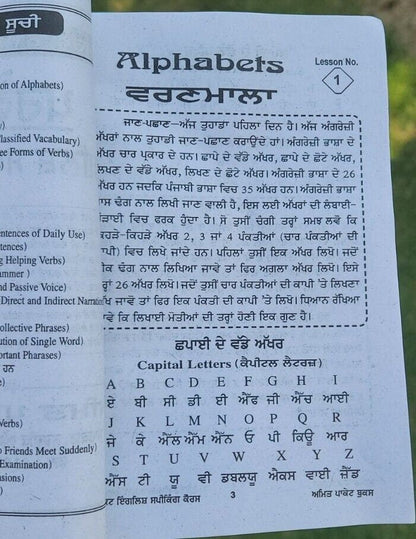 ਸੂਚੀ
on of Alphabets)
lassified Vacabulary)
ee Forms of Verbs)
entences of Daily Use)
tences)
g Helping Verbs)
ammer )
nd Passive Voice)
Direct and Indirect Narration
ollective Phrases)
ution of Single Word)
ortant Pharases)
ਹਨ
Verbs)
o Friends Meet Suddenly)
Examination)
sions)
Alphabets
Lesson No.
1
ਵਰਣਮਾਲਾ
ਜਾਣ-ਪਛਾਣ—ਅੱਜ ਤੁਹਾਡਾ ਪਹਿਲਾ ਦਿਨ ਹੈ। ਅੱਜ ਅੰਗਰੇਜ਼ੀ
ਅੱਖਰਾਂ ਨਾਲ ਤੁਹਾਡੀ ਜਾਣ-ਪਛਾਣ ਕਰਾਉਂਦੇ ਹਾਂ। ਅੰਗਰੇਜ਼ੀ ਭਾਸ਼ਾ ਦੇ
ਅੱਖਰ ਚਾਰ ਪ੍ਰਕਾਰ ਦੇ ਹਨ। ਛਾਪੇ ਦੇ ਵੱਡੇ ਅੱਖਰ, ਛਾਪੇ ਦੇ ਛੋਟੇ ਅੱਖਰ,
ਲਿਖਣ ਦੇ ਵੱਡੇ ਅੱਖਰ, ਲਿਖਣ ਦੇ ਛੋਟੇ ਅੱਖਰ। ਅੰਗਰੇਜ਼ੀ ਭਾਸ਼ਾ ਦੇ 26
ਅੱਖਰ ਹਨ ਜਦਕਿ ਪੰਜਾਬੀ ਭਾਸ਼ਾ ਵਿਚ 35 ਅੱਖਰ ਹਨ। ਅੰਗਰੇਜ਼ੀ ਭਾਸ਼ਾ
ਸ ਢੰਗ ਨਾਲ ਲਿਖੀ ਜਾਣ ਵਾਲੀ ਹੈ, ਇਸ ਲਈ ਅੱਖਰਾਂ ਦੀ ਲੰਬਾਈ-
ੜਾਈ ਵਿਚ ਫਰਕ ਹੁੰਦਾ ਹੈ। ਸੋ ਤੁਸੀਂ ਚੰਗੀ ਤਰ੍ਹਾਂ ਸਮਝ ਲਵੋ ਕਿ
ਕਿਹੜੇ-ਕਿਹੜੇ ਅੱਖਰ 2, 3 ਜਾਂ 4 ਪੰਕਤੀਆਂ (ਚਾਰ ਪੰਕਤੀਆਂ ਦੀ
ਾਪੀ) ਵਿਚ ਲਿਖੇ ਜਾਂਦੇ ਹਨ। ਪਹਿਲਾਂ ਤੁਸੀਂ ਇਕ ਅੱਖਰ ਲਿਖੋ। ਜਦੋਂ
ੀਕ ਢੰਗ ਨਾਲ ਲਿਖਿਆ ਜਾਵੇ ਤਾਂ ਫਿਰ ਅਗਲਾ ਅੱਖਰ ਲਿਖੋ। ਇਸੇ
ਰ੍ਹਾਂ 26 ਅੱਖਰ ਲਿਖੋ। ਜਦੋਂ ਤੁਸੀਂ ਚਾਰ ਪੰਕਤੀਆਂ ਦੀ ਕਾਪੀ 'ਤੇ ਲਿਖਣਾ
ਿਖ ਜਾਵੋ ਤਾਂ ਫਿਰ ਇਕ ਪੰਕਤੀ ਦੀ ਕਾਪੀ 'ਤੇ ਲਿਖੋ। ਧਿਆਨ ਰੱਖਿਆ
ਾਵੇ ਕਿ ਲਿਖਾਈ ਮੋਤੀਆਂ ਦੀ ਤਰ੍ਹਾਂ ਹੋਣੀ ਇਕ ਗੁਣ ਹੈ।
ਛਪਾਈ ਦੇ ਵੱਡੇ ਅੱਖਰ
Capital Letters (ਕੈਪੀਟਲ ਲੈਟਰਜ਼)
A B C D E F G H I
ਏ ਬੀ ਸੀ ਡੀ ਈ ਐੱਫ ਜੀ ਐੱਚ ਆਈ
J K L M N O P Q R
ਜੇ ਕੇ ਐੱਲ ਐੱਮ ਐੱਨ ਓ ਪੀ ਕਿਊ ਆਰ
S T U V W X Y Z
ਐੱਸ ਟੀ ਯੂ ਵੀ ਡਬਲਯੂ ਐਕਸ ਵਾਈ ਜ਼ੈੱਡ
ਟ ਇੰਗਲਿਸ਼ ਸਪੀਕਿੰਗ ਕੋਰਸ 3 ਅਮਿਤ ਪਾਕੇਟ ਬੁਕਸ